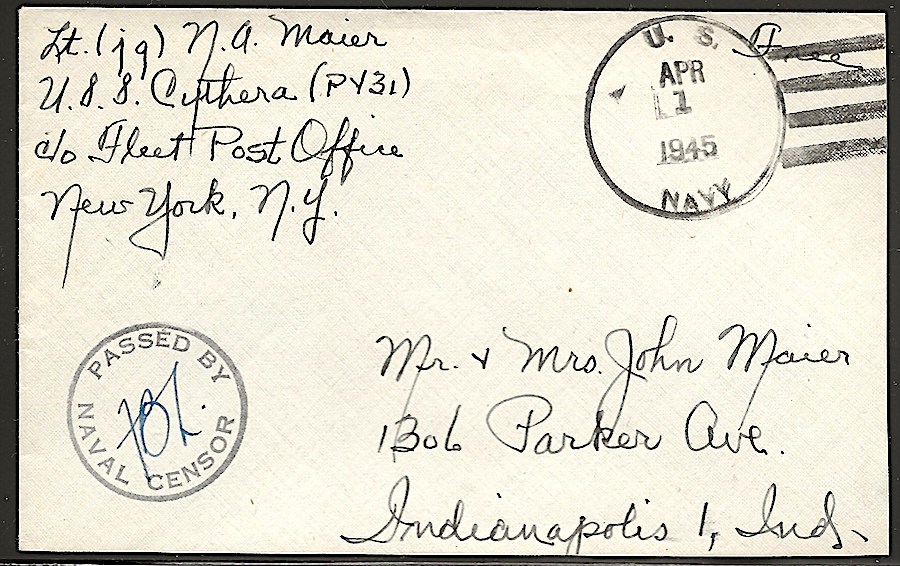 Lt. (jg) N.A. Maier
U.S.S. Cythera (PY31)
c/o Fleet Post Office
New York, N.Y.
Free
U. S.
APR
1
1945
NAVY
PASSED BY
NAVAL CENSOR
Mr. & Mrs. John Maier
1306 Parker Ave.
Indianapolis 1, Ind.